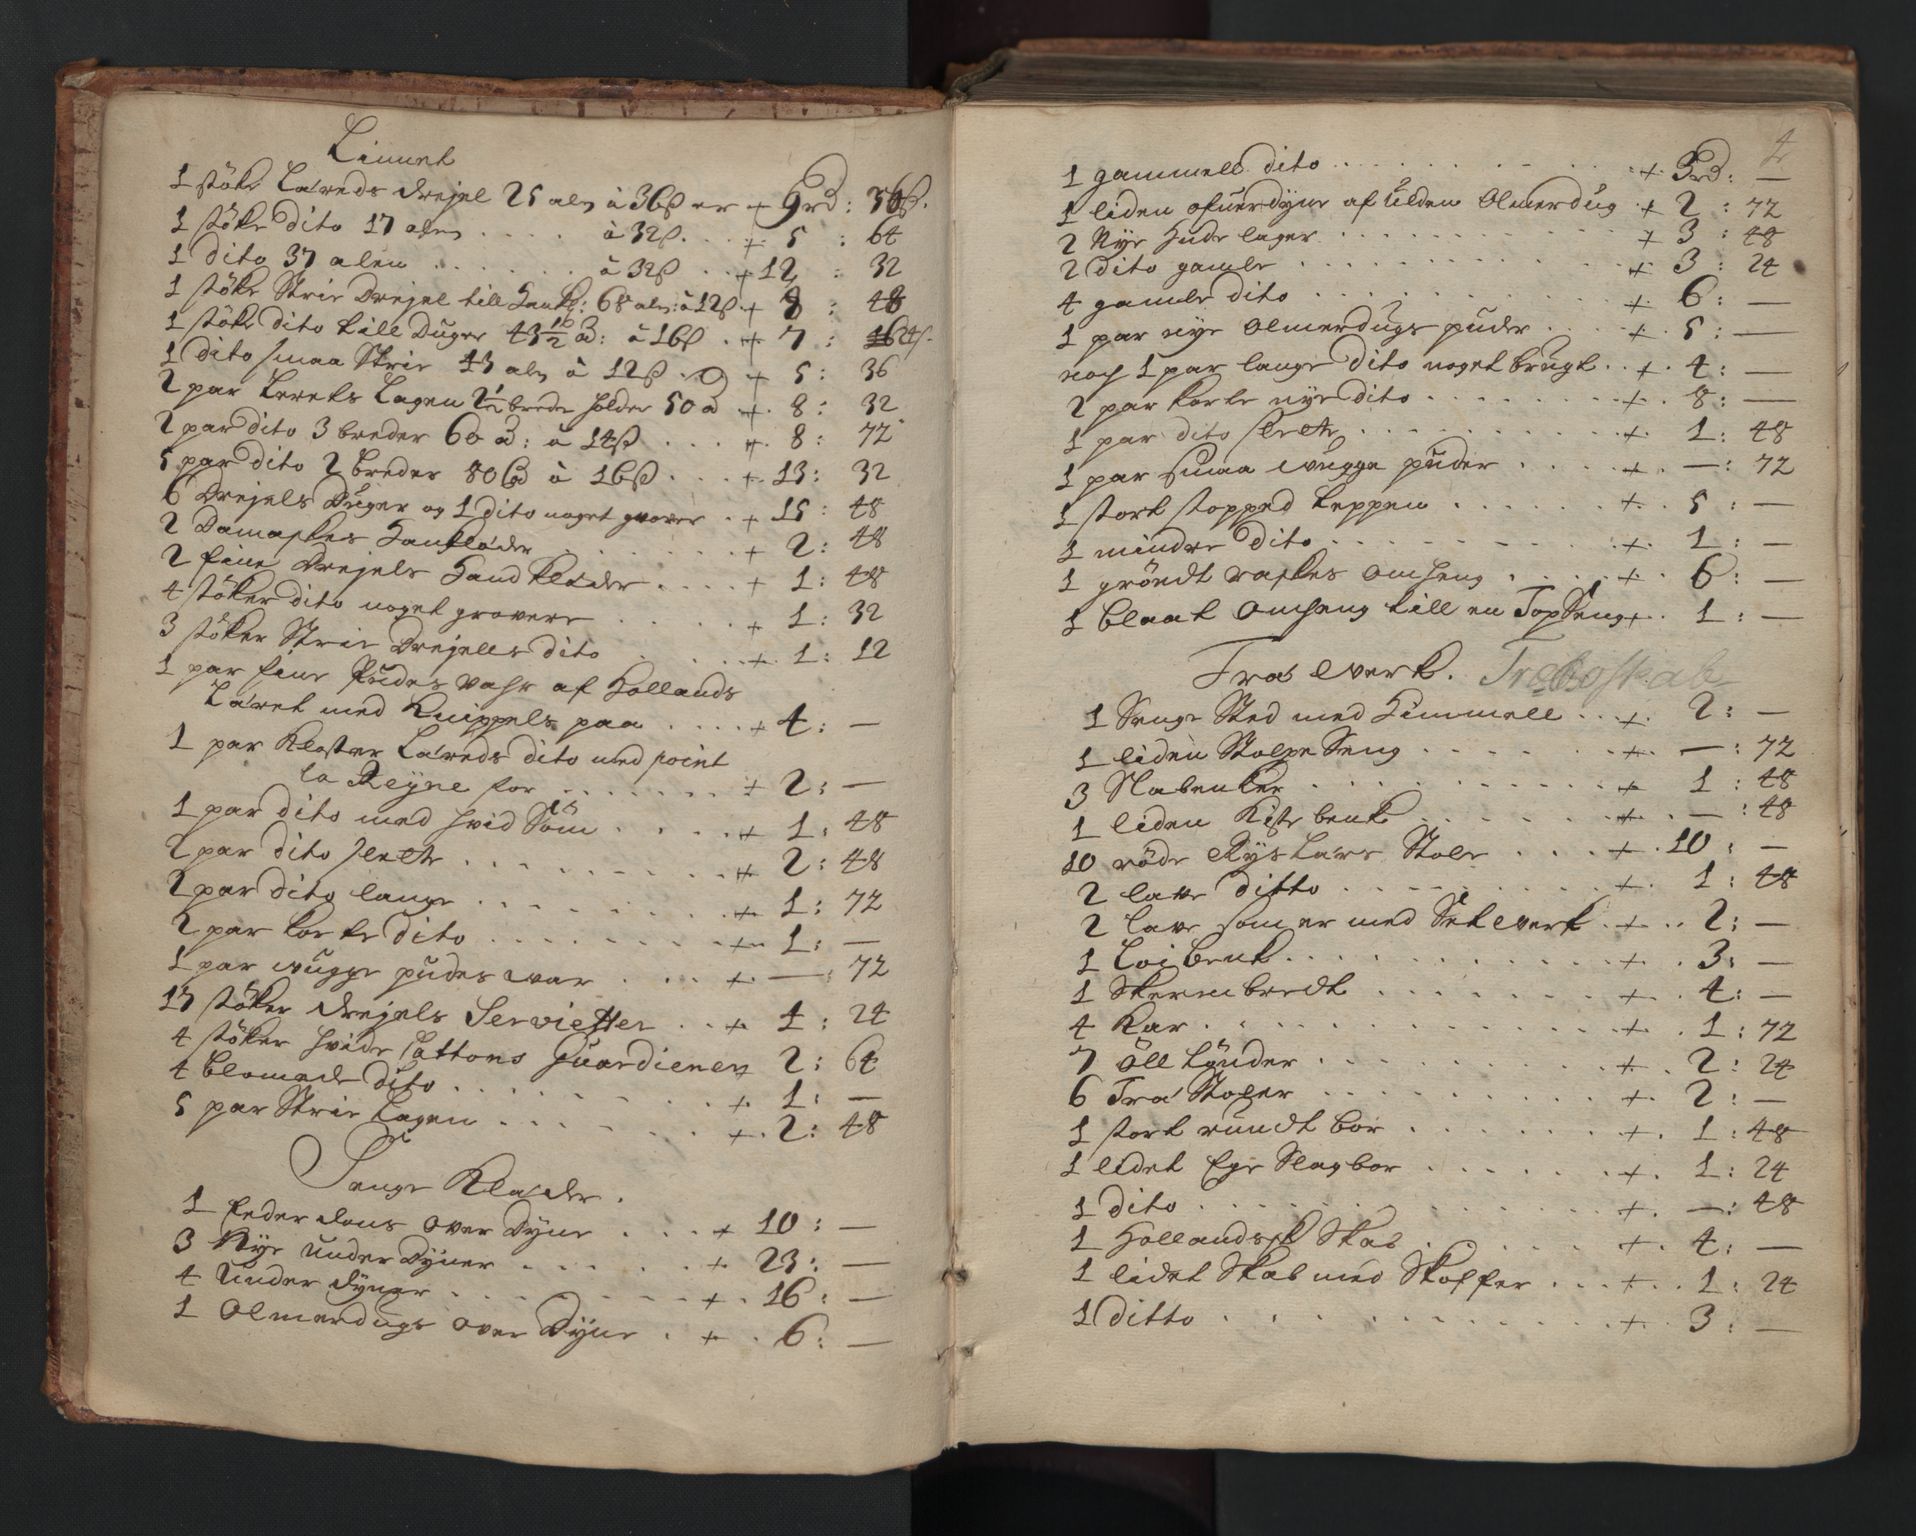 Linnet
1 støke Lærreds Drejel 25 alen à 36ß er + 9rd: 36ß.
1 støke dito 17 alen .... à 32ß ... + 5 : 64
1 dito 37 alen ...... à 32ß .. + 12 : 32
1 støke Strie Drejel till Handk: 68 alen: à 12ß + 8 : 48
1 støke dito till Duger 43½ a: à 16ß . + 7 :
1 dito smaa Strie 45 alen à 12ß .. + 5 : 36
2 par Lerets Lagen 2½ brede holder 50 a + . 8 : 32
2 par dito 3 breder 60 a: à 14ß .... + . 8 : 72
5 par dito 2 breder 80 a à 16ß ... + . 13 : 32
6 Drejels Duger og 1 dito noget grover . + 15 : 48
2 Damaskes Hankløder ....... + 2 : 48
2 fine Drejels Handkleder .... + 1 : 48
4 støker dito noget grovere ..... + 1 : 32
3 støker Strie Drejells dito .... + . 1 : 12
1 par fine Pudes vahr af Hollands
Læret med Knippels paa .... + 4 : —
1 par Kloster Læreds dito med point
la Reyne for ....... + 2 : —
1 par dito med hvid Søm ..... + 1 : 48
2 par dito slette ....... + 2 : 48
2 par dito lange ....... + 1 : 72
2 par korte dito ....... + 1 : —
1 par vugge pudes war .... + — : 72
17 støker drejels Servietter ... + 4 : 24
4 støker hvide Cattons Guardienen 2 : 64
4 blomede dito ......... + . 1 : —
5 par Strie Lagen ....... + . 2 : 48
Senge Klæder .
1 feder dons over Dyne ... + 10 : —
3 Nye under Dyner ..... + 23 : —
4 Under dyner ....... + . 16 : —
1 Olmerdugs over Dyne . . + . 6 : —
4
1 gammell dito .......... + 3rd : —
1 liden ofuerdyne af ulden Olmerdug . + 2 : 72
2 Nye Hude lager ......... + 3 : 48
2 dito gamle ........... + 3 : 24
4 gamle dito ......... + 6 : —
1 par nye Olmerdugs puder .... + . 5 : —
noch 1 par lange dito noget brugt .. + . 4 : —
2 par korte nye dito ........ + . 8 : —
1 par dito slette ......... + . 1 : 48
1 par smaa wugge puder .... + . — : 72
1 stort stopped teppen ...... + . 5 : —
1 mindre dito .......... + . 1 : —
1 grøndt raskes omheng ..... + . 6 : —
1 blaat omheng till en TopSeng + . . 1 : —
Træ Werk . Træboskab
1 Senge Sted med Himmell .. + . 2 : —
1 liden StolpeSeng ....... + . — : 72
3 Slabenker ......... + 1 : 48
1 liden Kiste benk ....... + . — : 48
10 røde Ryslærs Stole .... + . 10 : —
2 lave ditto ......... + . 1 : 48
2 lave som er med Setewerk . + . . 2 : —
1 Loibenk ........... + . . 3 : —
1 Skermbredt ........ + . . 4 : —
4 Kar ............ + . . 1 : 72
7 Øll tønder ........ + . . 2 : 24
6 Træ Stoler ......... + . 2 : —
1 stort rundt bor ...... + . . 1 : 48
1 lidet Ege Slagbor ...... + . . 1 : 24
1 dito ............ + . — : 48
1 Hollandsk Skab ....... + . . 4 : —
1 lidet Skab med Skoffer ... + . . 1 : 24
1 ditto ........... + . . 3 : —